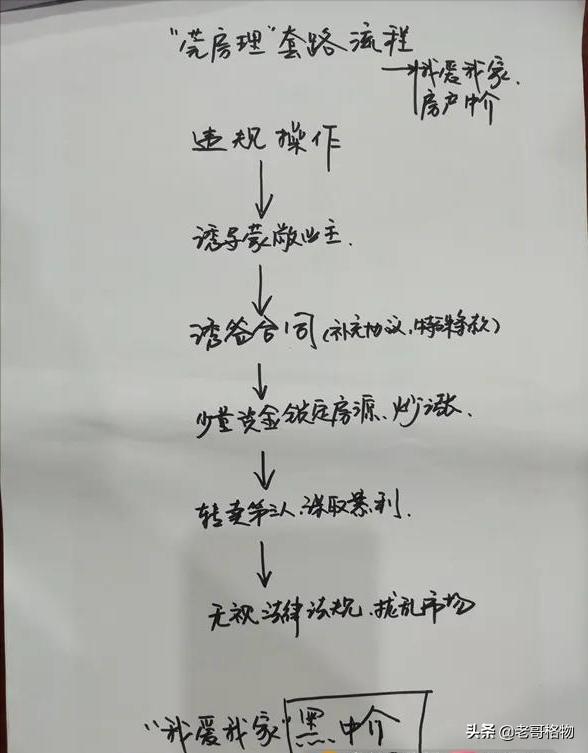 "芒房理"套路流程
→我爱我家.
房户中介
违规操作
诱导蒙蔽业主.
诱签合同(补充协议,特殊条款)
少量资金锁定房源、炒涨.
转卖第三人.谋取暴利.
无视法律法规.扰乱市场
"我爱我家"黑中介
头条 @老哥格物